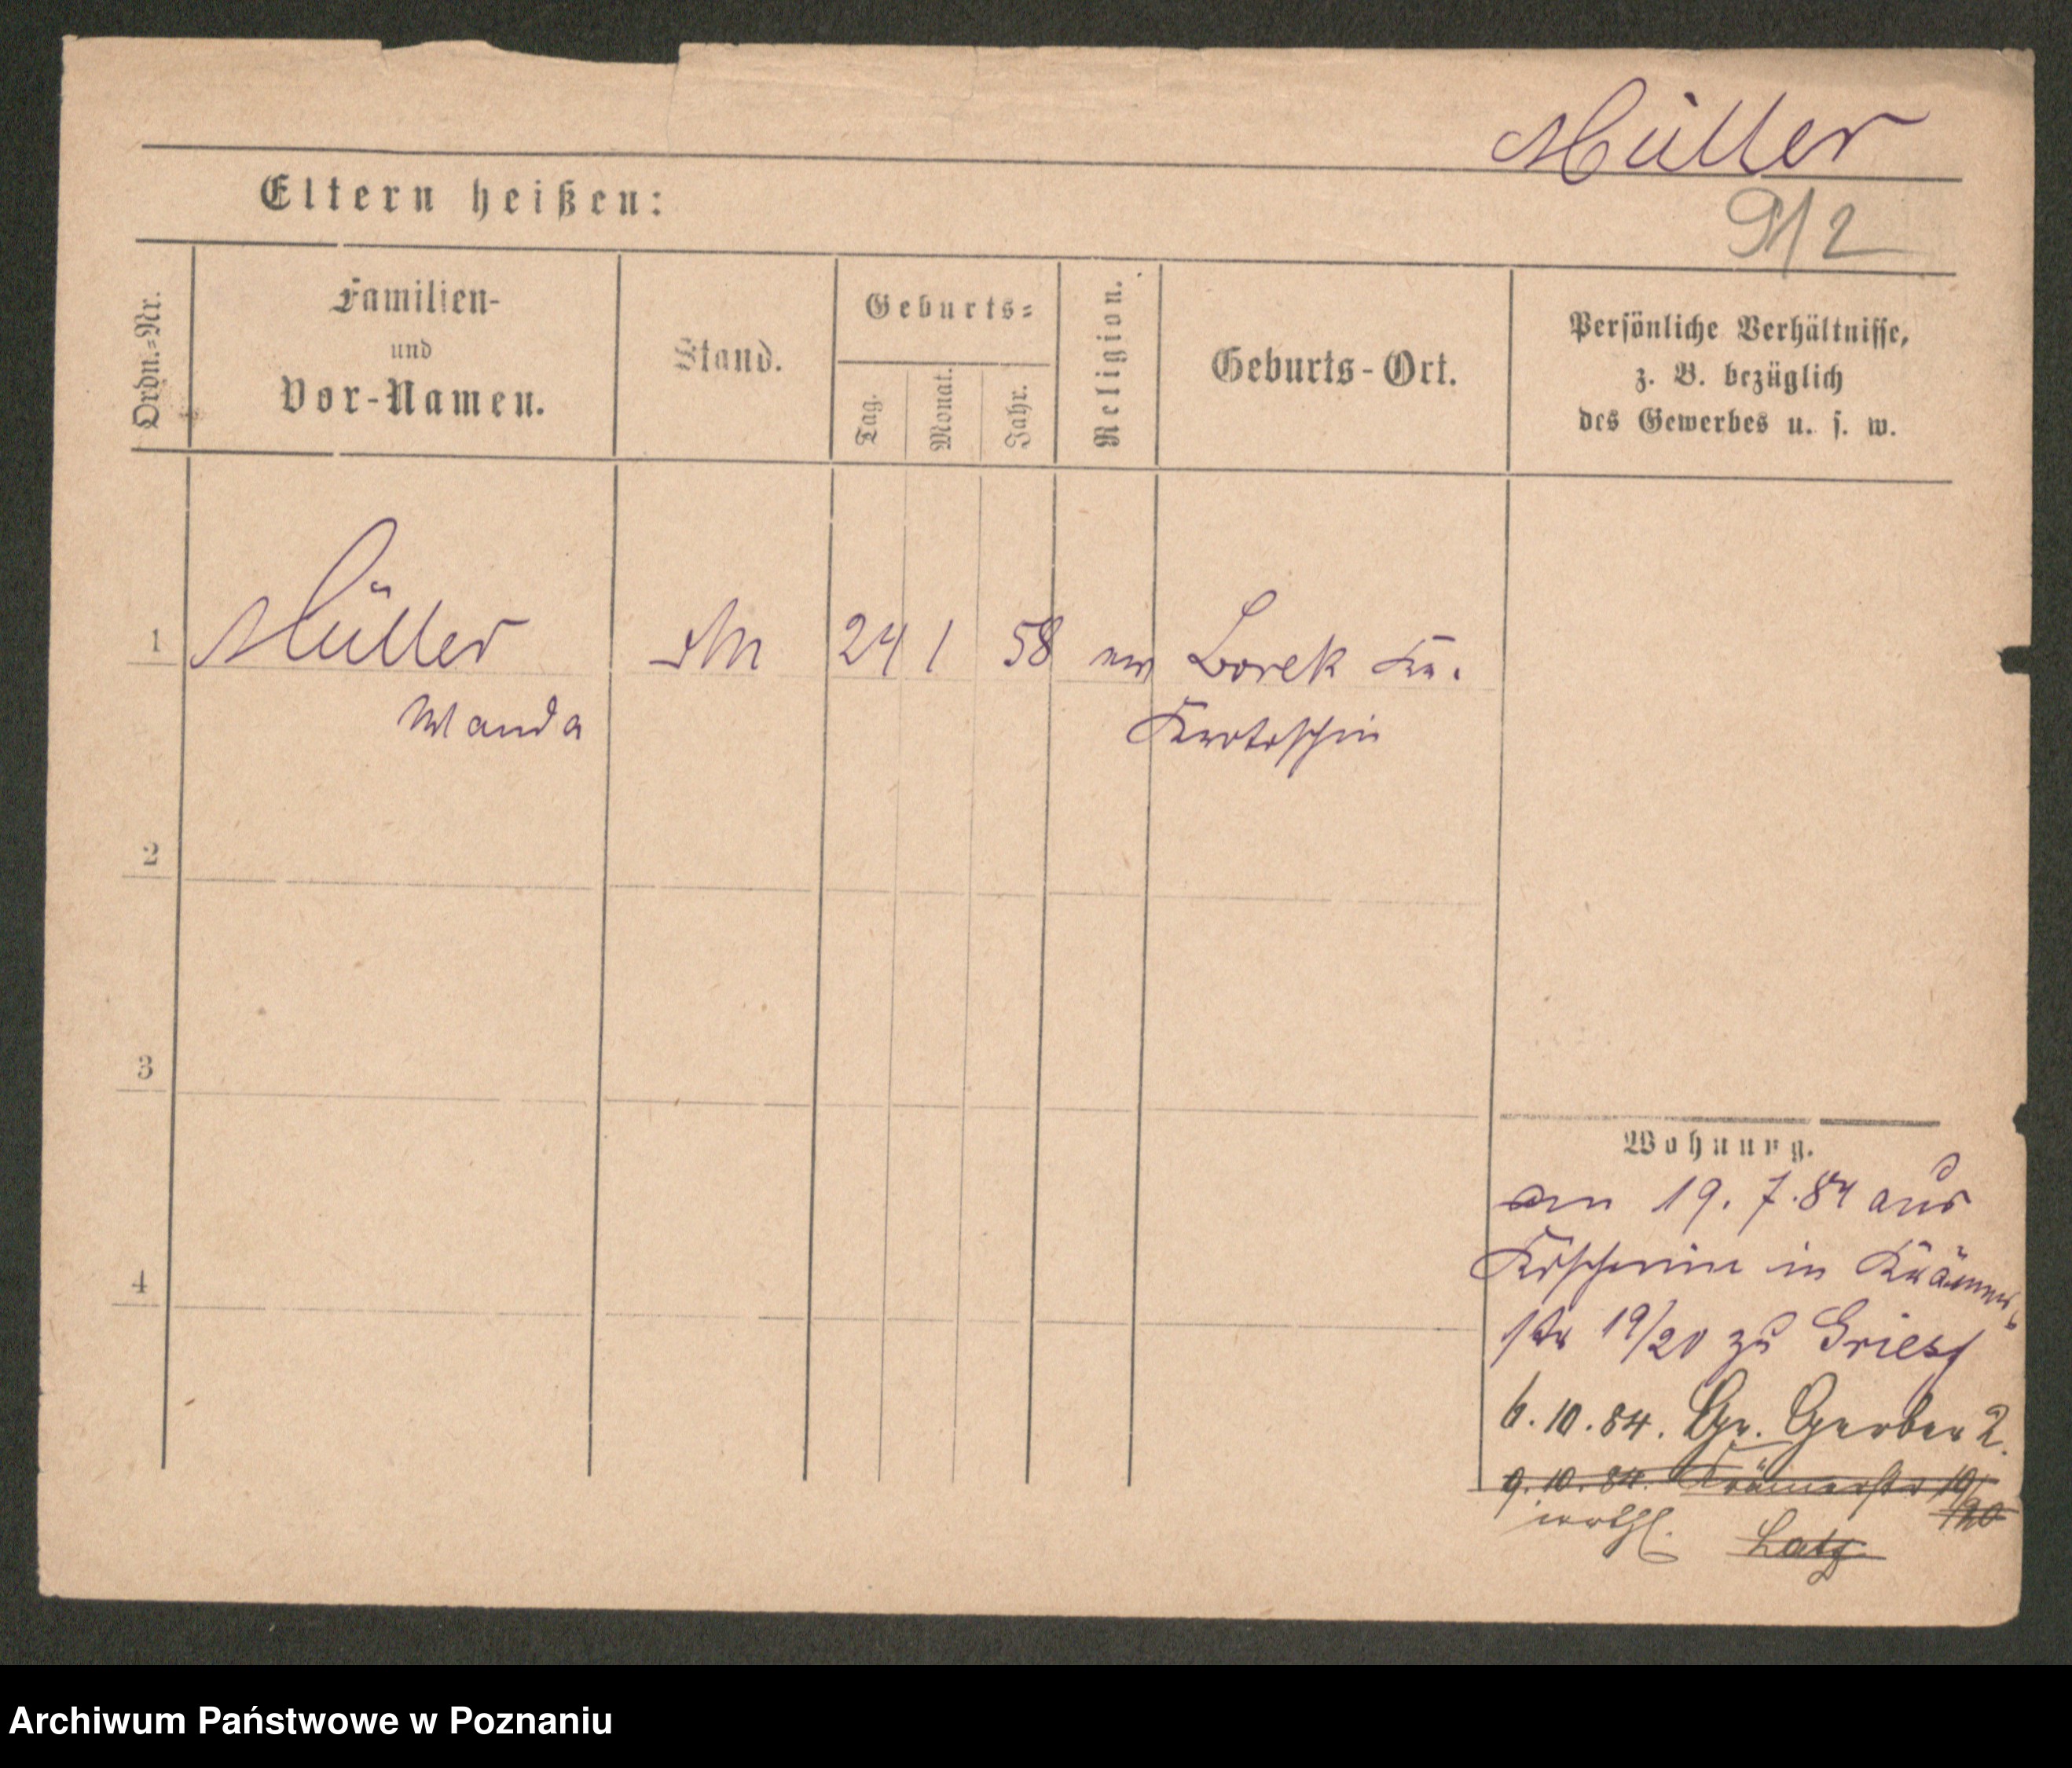 Müller
Eltern heißen:
912
Ordn.-Nr.
Familien-
und
Vor-Namen.
Stand.
Geburts-
Tag.
Monat.
Jahr.
Religion.
Geburts-Ort.
Persönliche Verhältnisse,
z. B. bezüglich
des Gewerbes u. s. w.
1 Müller 24 1 58 ev Borek Kr.
Wanda Krotoschin
2
3
4
Wohnung.
am 19. 7. 84 aus
Koschmin in Krämer
str 19/20 zu Griess
6. 10. 84. Gr. Gerber 2.
9. 10. 84. Krämerstr 19/20
Latz
Archiwum Państwowe w Poznaniu